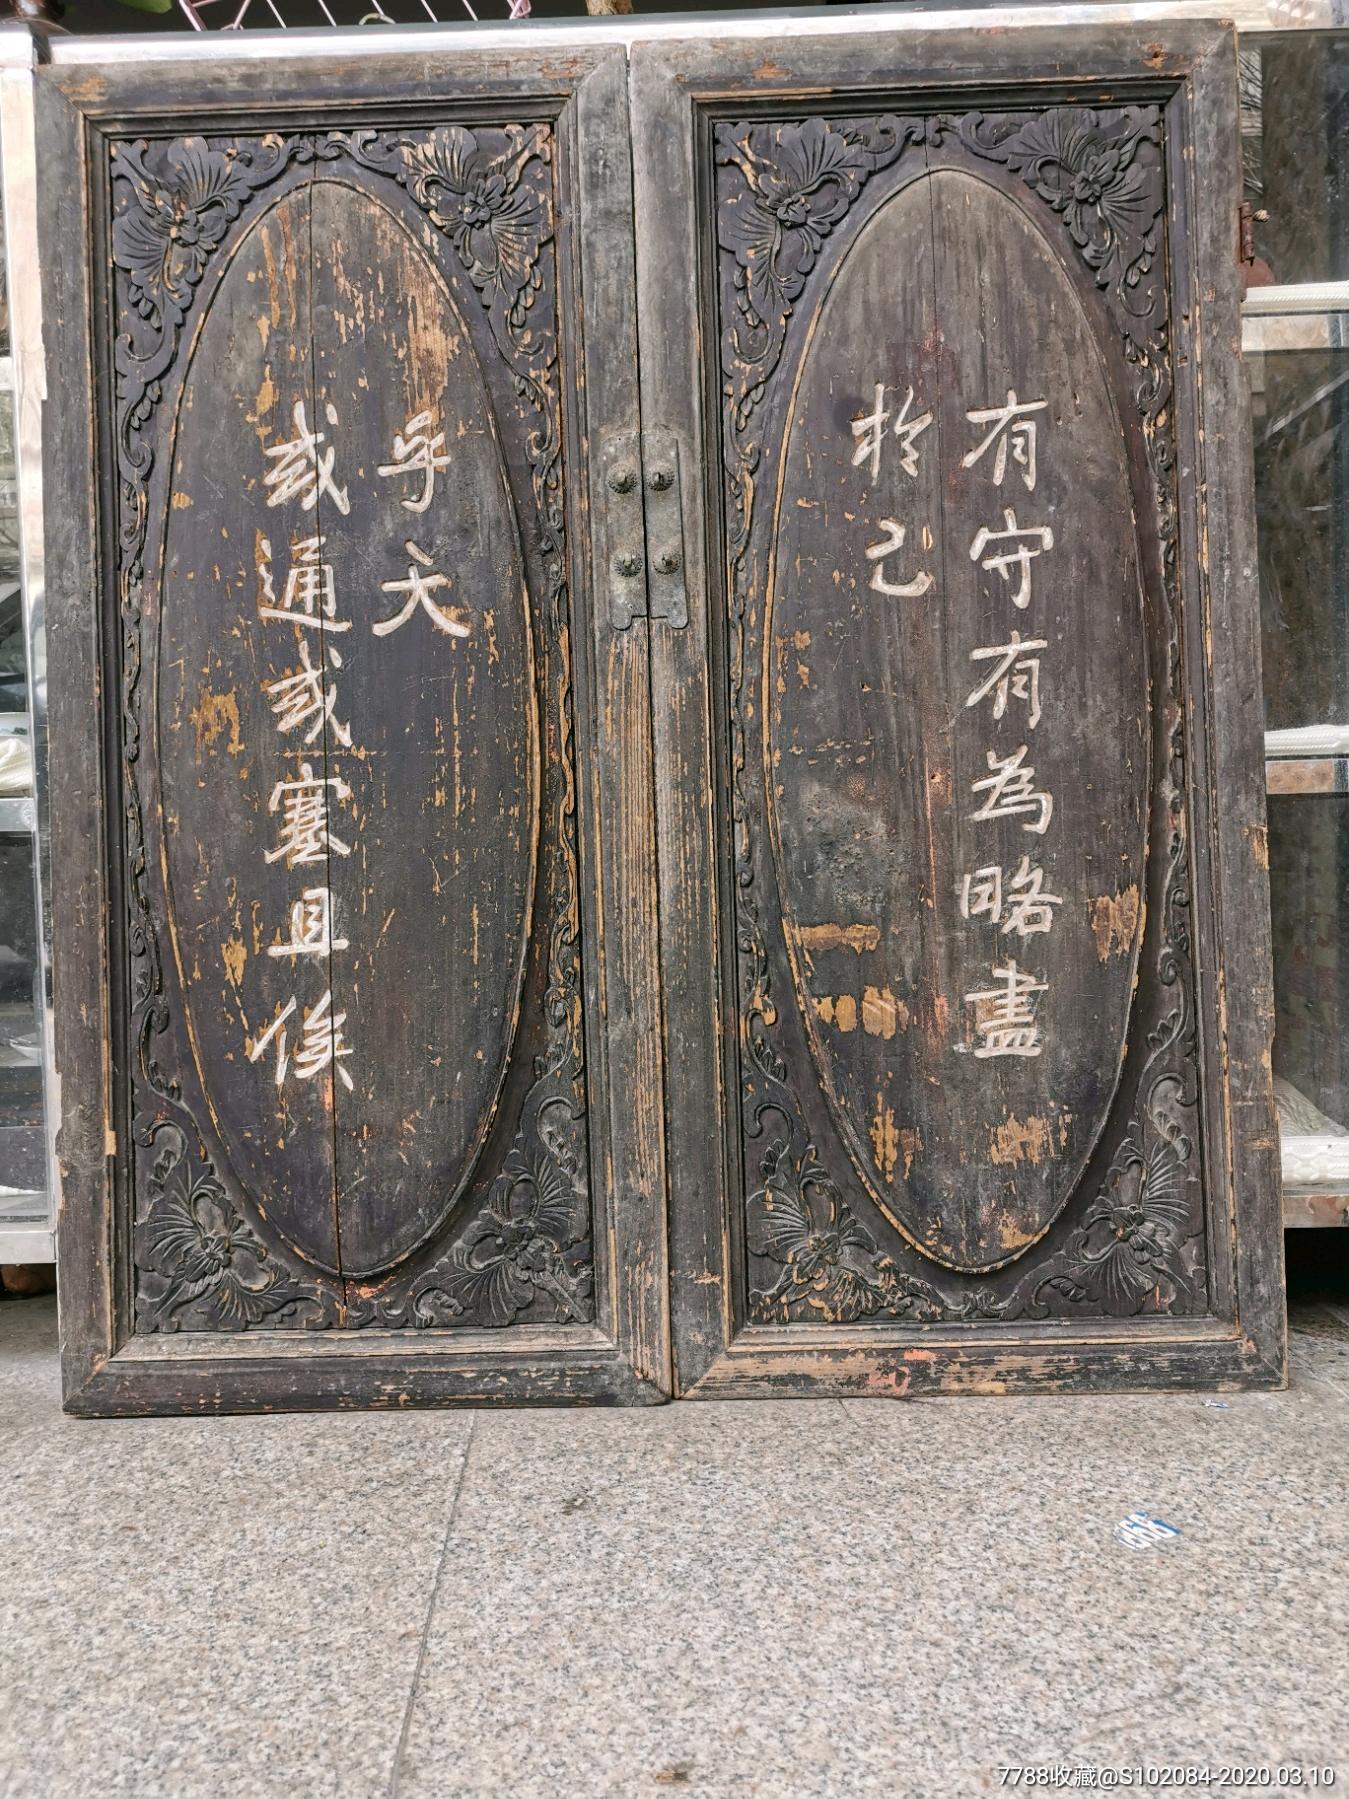 有守有為略盡
於己
或通或塞且俟
乎天
7788收藏@S102084-2020.03.10